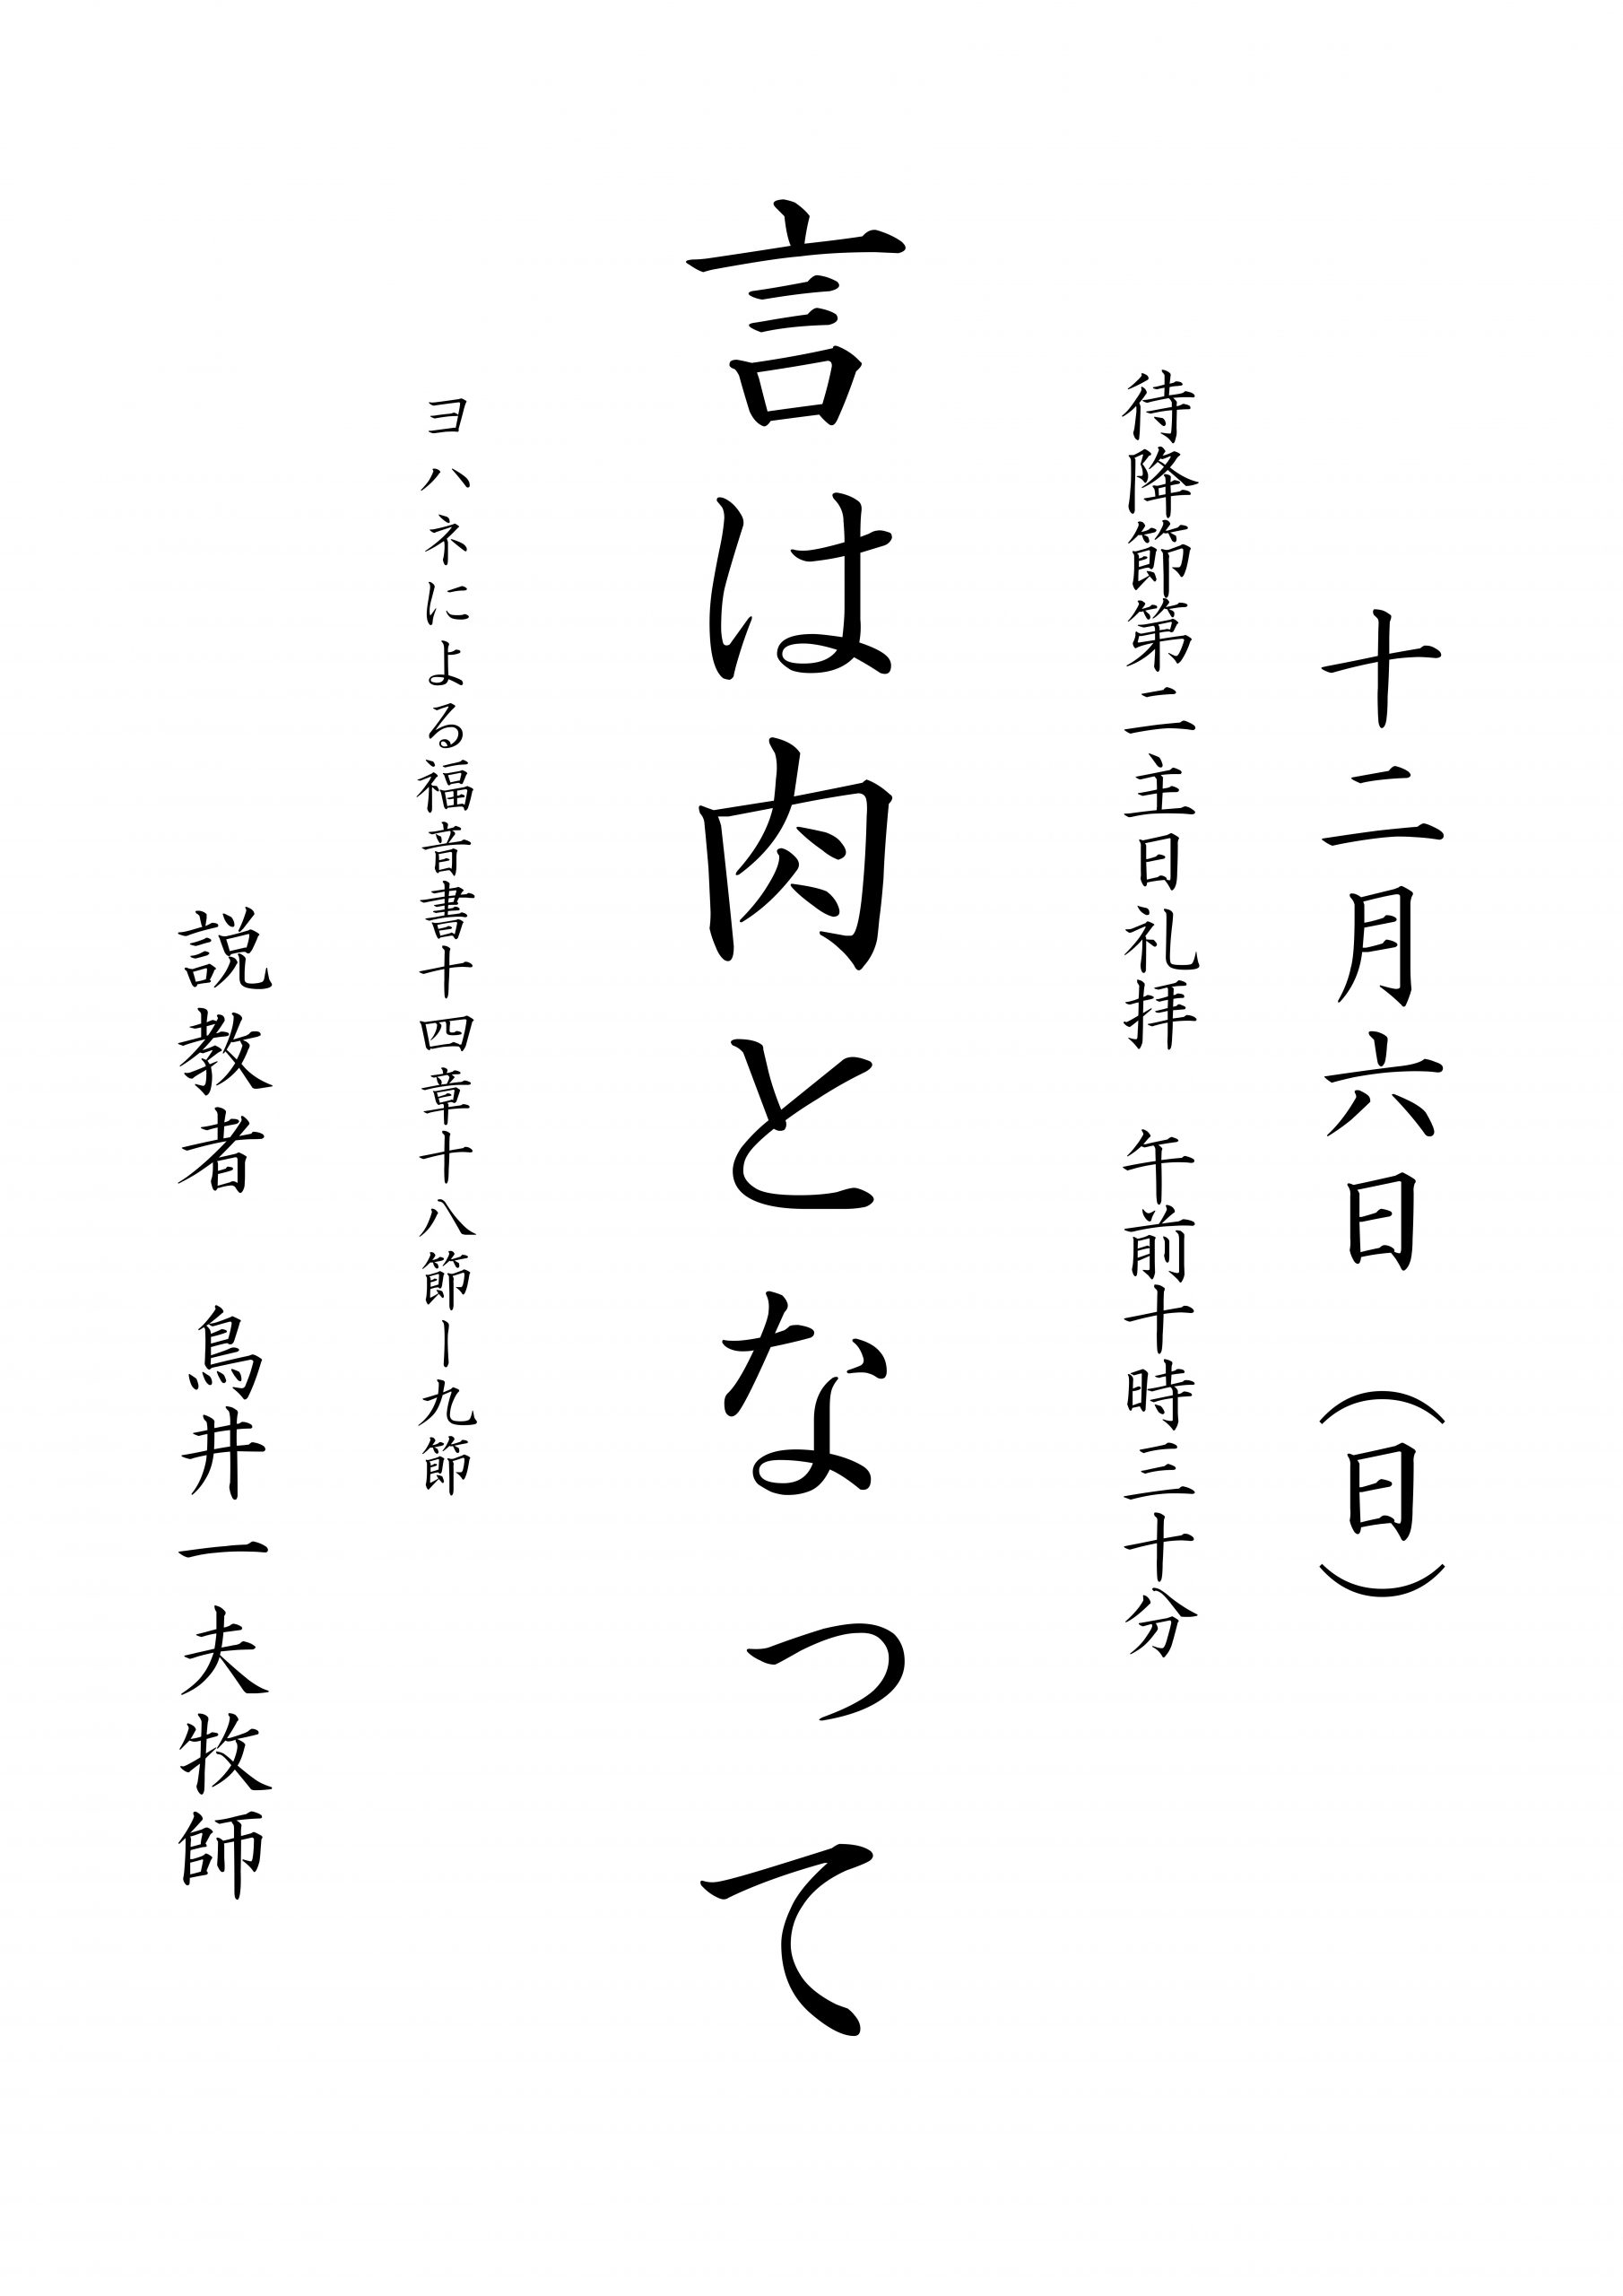 十二月六日(日)
待降節第二主日礼拝　午前十時三十分
言は肉となって
ヨハネによる福音書十四章十八節ー九節
説教者　鳥井一夫牧師